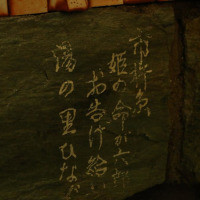 市杵島
姫の命が六
お告げ給い
湯の里ひな